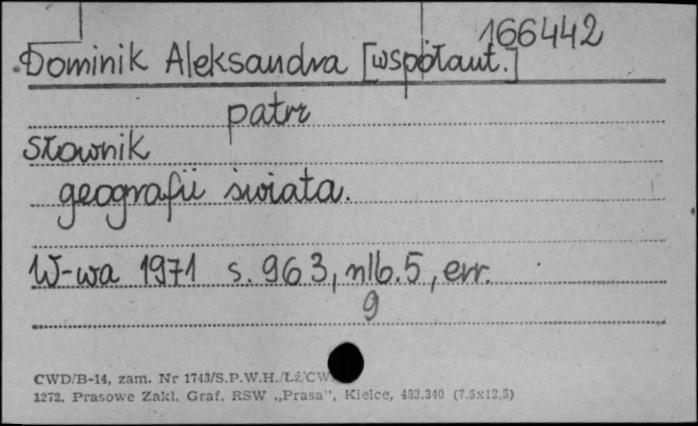 166442
Dominik Aleksandra [współaut.]
patrz
Słownik
geografii świata.
W-wa 1971 s. 963, nlb. 5, err.
9
CWD/B-14, zam. Nr 1743/S.P.W.H./Łź/CW
1272. Prasowe Zakł. Graf. RSW „Prasa", Kielce, 483.340 (7,5x12,5)